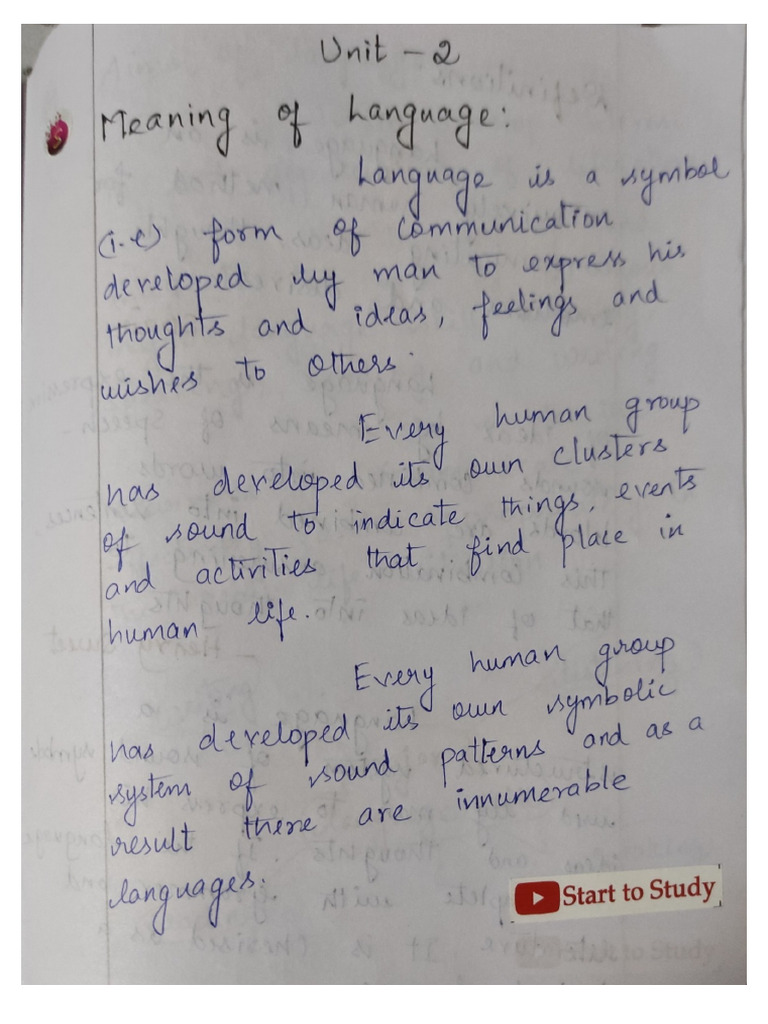 Unit - 2
Meaning of Language:
Language is a symbol
(i.e) form of communication
developed by man to express his
thoughts and ideas, feelings and
wishes to others.
Every human group
has developed its own clusters
of sound to indicate things, events
and activities that find place in
human life.
Every human group
has developed its own symbolic
system of sound patterns and as a
result there are innumerable
languages.
Start to Study